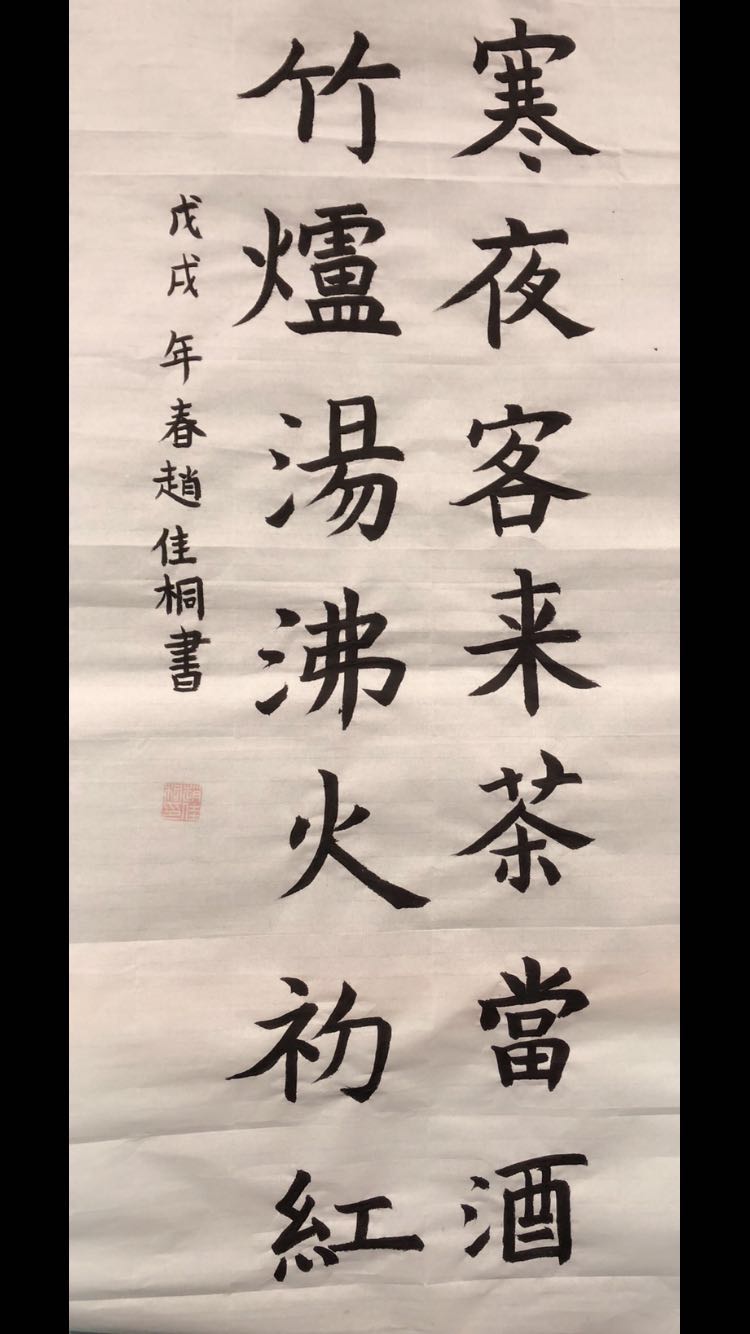 寒夜客来茶當酒
竹爐湯沸火初紅
戊戌年春趙佳桐書